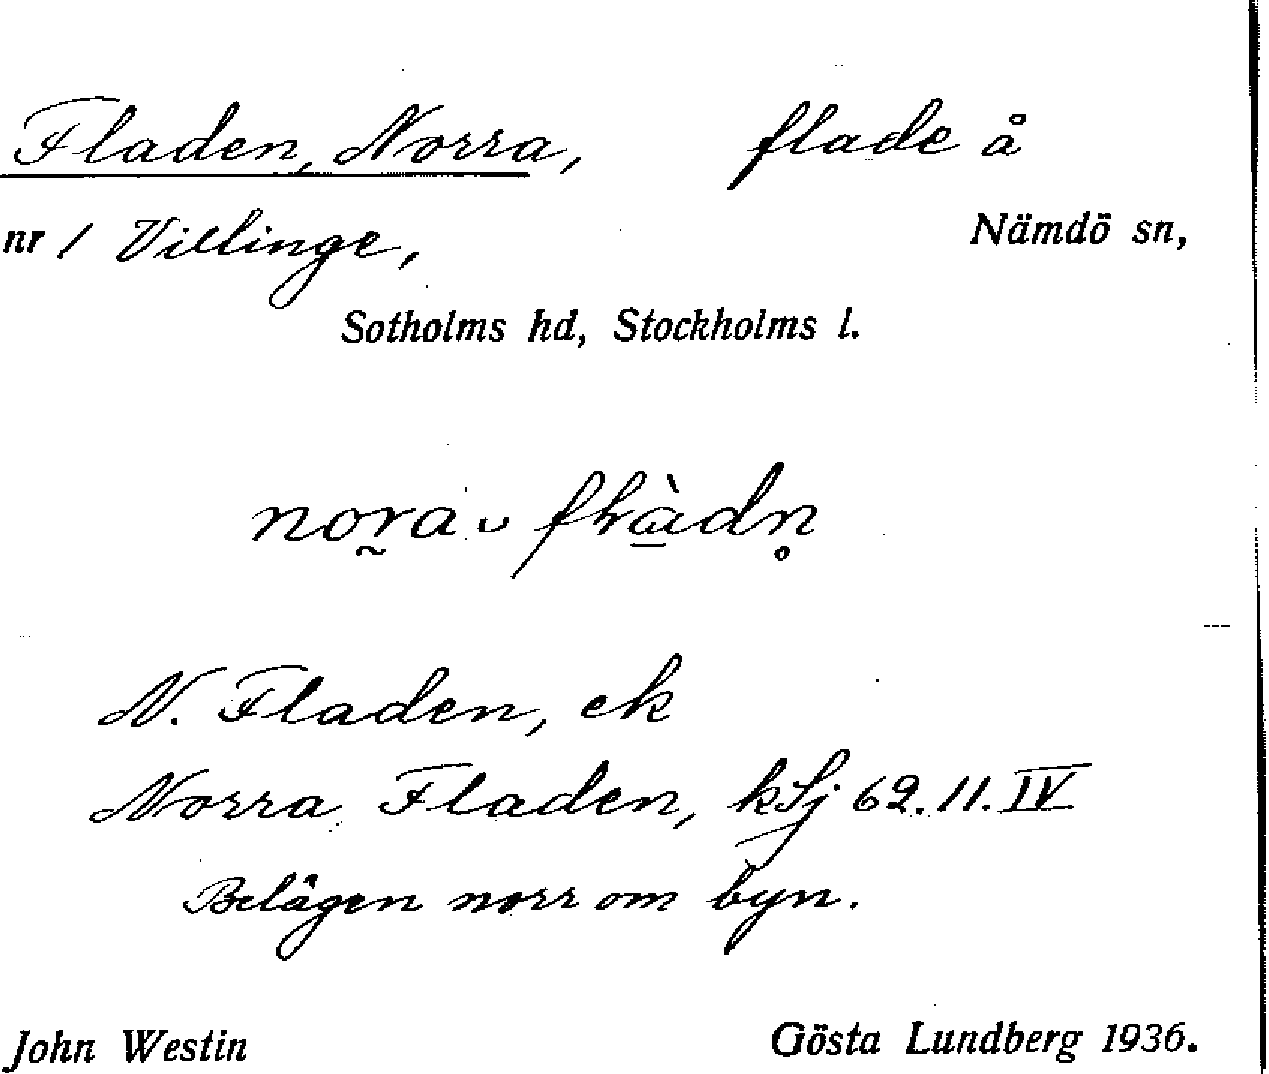 Fladen, Norra, flade å
nr 1 Villinge, Nämdö sn,
Sotholms hd, Stockholms l.
nora
N. Fladen, ek
Norra Fladen, kSj 62.11.IV
Belägen norr om byn.
John Westin Gösta Lundberg 1936.